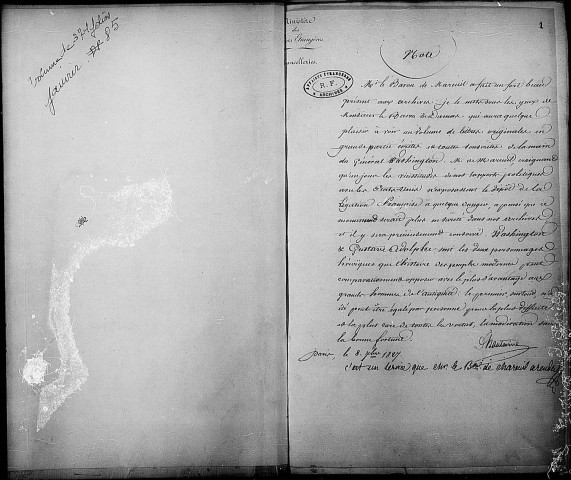 Volume de 374 folios
Janvier 85
Ministère
des
1
Note
AFFAIRES ÉTRANGÈRES
R.F.
ARCHIVES
Mr le Baron de Mareuil a fait un fort beau
présent aux archives. je le mets sous les yeux de
Monsieur le Baron de Damas qui aura quelque
plaisir à voir un volume de lettres originales en
grande partie écrites et toutes souscrites de la main
du Général Washington. M. de Mareuil craignant
qu'un jour les vicissitudes de nos rapports politiques
avec les Etats-Unis n'exposassent le dépôt de la
Légation Française à quelque danger, a pensé que ce
monument serait plus en sûreté dans nos archives
et il y sera précieusement conservé. Washington
& Gustave Adolphe sont les deux personnages
héroïques que l'histoire des peuples modernes peut
opposer avec le plus d'avantage aux
grands hommes de l'antiquité. le premier, surtout, n'a
été peut être égalé par personne pour la plus difficile
et la plus rare de toutes les vertus, la modération dans
la bonne fortune.
Paris, le 8. 1827
c'est un service que Mr le Bon de Mareuil a rendu